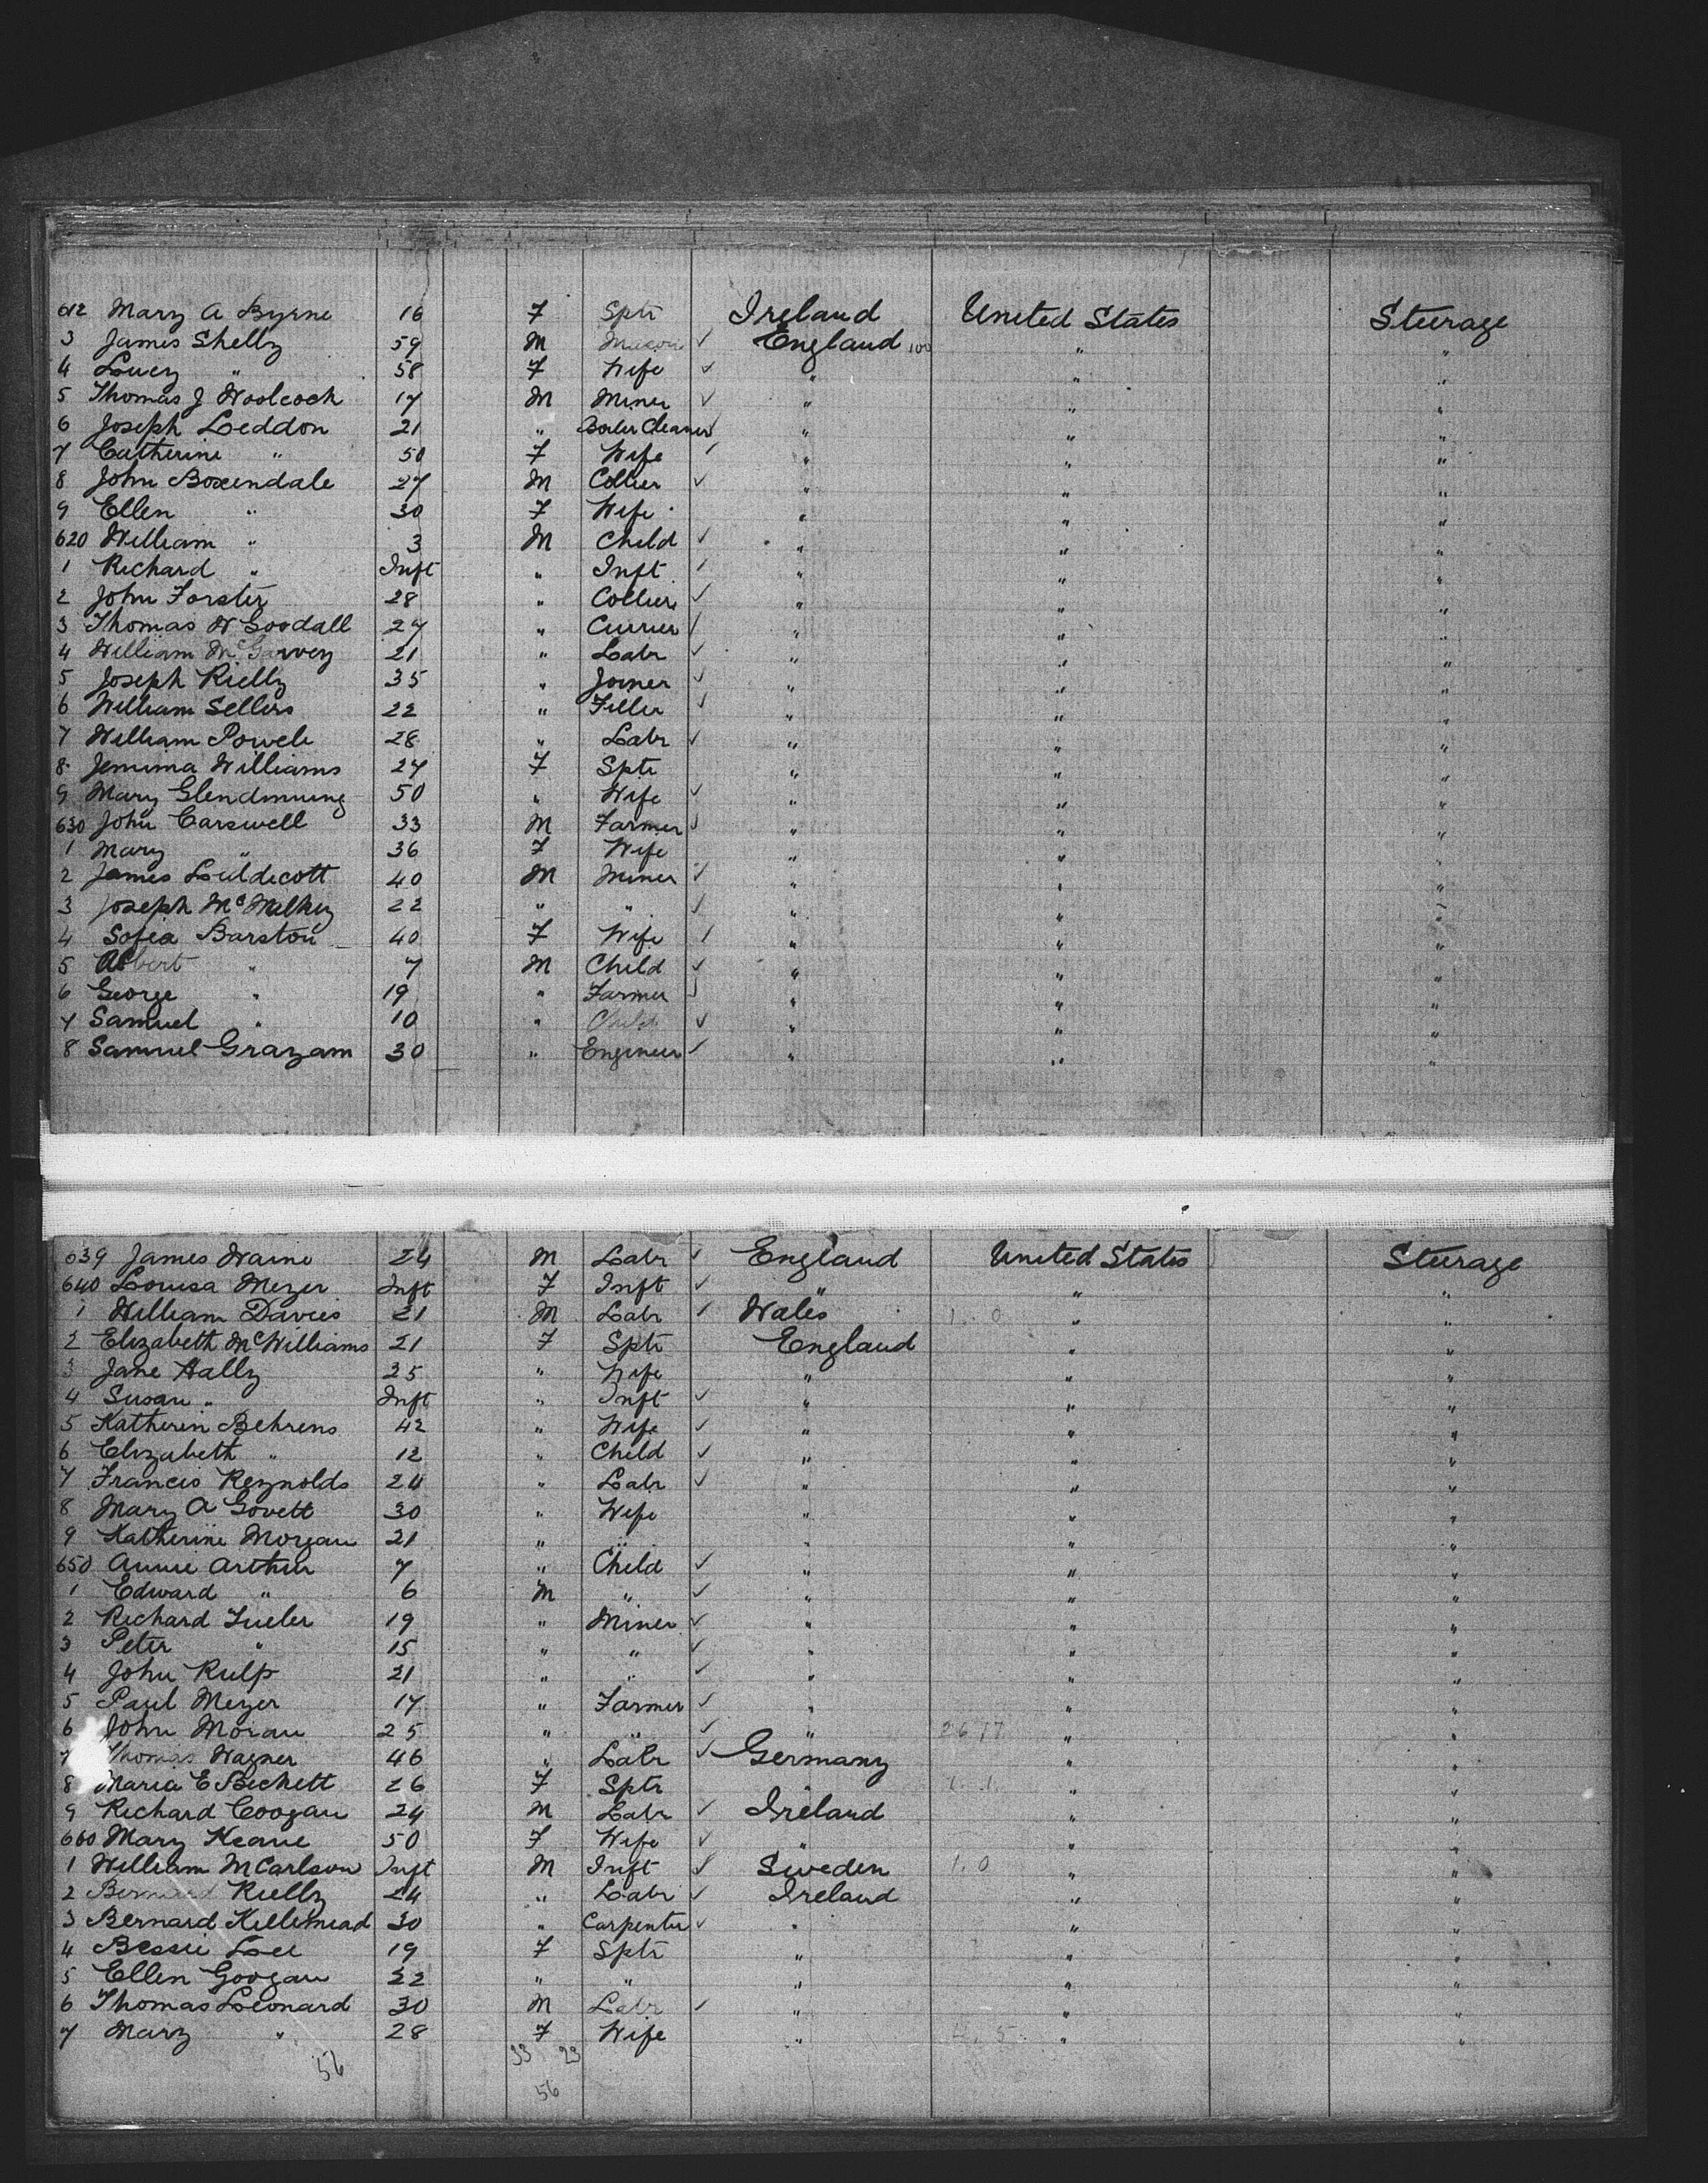 612 Mary A Byrne 16 F Sptr Ireland United States Steerage
3 James Shelly 59 M Mason ✓ England 100 " "
4 Lucy " 58 F Wife ✓ " " "
5 Thomas J Woolcock 17 M Miner ✓ " " "
6 Joseph Leddon 21 " Boiler Cleaner ✓ " " "
7 Catherine " 50 F Wife ✓ " " "
8 John Boxendale 27 M Collier ✓ " " "
9 Ellen " 30 F Wife " " "
620 William " 3 M Child ✓ " " "
1 Richard " Inft " Inft ✓ " " "
2 John Forster 28 " Collier ✓ " " "
3 Thomas W Goodall 27 " Currier ✓ " " "
4 William McGarvey 21 " Labr ✓ " " "
5 Joseph Rielly 35 " Joiner ✓ " " "
6 William Sellers 22 " Filler ✓ " " "
7 William Powell 28 " Labr ✓ " " "
8 Jemima Williams 27 F Sptr " " "
9 Mary Glendinning 50 " Wife ✓ " " "
630 John Carswell 33 M Farmer ✓ " " "
1 Mary " 36 F Wife " " "
2 James Liddecott 40 M Miner ✓ " " "
3 Joseph 22 " " ✓ " " "
4 Sofia Barston 40 F Wife ✓ " " "
5 Albert " 7 M Child ✓ " " "
6 George " 19 " Farmer ✓ " " "
7 Samuel " 10 " Child ✓ " " "
8 Samuel Grazam 30 " Engineer ✓ " " "
639 James Waine 24 M Labr ✓ England United States Steerage
640 Louisa Mezer Inft F Inft ✓ " " "
1 William Davies 21 M Labr ✓ Wales 1. 0 " "
2 Elizabeth McWilliams 21 F Sptr England " "
3 Jane Hally 35 " Wife " " "
4 Susan " Inft " Inft ✓ " " "
5 Katherin Behrens 42 " Wife ✓ " " "
6 Elizabeth " 12 " Child ✓ " " "
7 Francis Reynolds 24 " Labr ✓ " " "
8 Mary A Govett 30 " Wife " " "
9 Katherine Morgan 21 " " " " "
650 Annie Arthur 7 " Child ✓ " " "
1 Edward " 6 M " ✓ " " "
2 Richard 19 " Miner ✓ " " "
3 Peter " 15 " " ✓ " " "
4 John Rulp 21 " " ✓ " " "
5 Paul Mezer 17 " Farmer ✓ " " "
6 John Moran 25 " " ✓ " 26 17 " "
7 Thomas Wagner 46 " Labr ✓ Germany " "
8 Maria E Beckett 26 F Sptr " 1. 1. " "
9 Richard Coogan 24 M Labr ✓ Ireland " "
660 Mary Keane 50 F Wife ✓ " " "
1 William McCarlson Inft M Inft ✓ Sweden 1. 0 " "
2 Bernard Rielly 24 " Labr ✓ Ireland " "
3 Bernard Killimead 30 " Carpenter ✓ " " "
4 Bessie Lee 19 F Sptr " " "
5 Ellen Googan 22 " " " " "
6 Thomas Leonard 30 M Labr ✓ " " "
7 Mary " 28 F Wife " 4. 5 " "
56 33 23
56